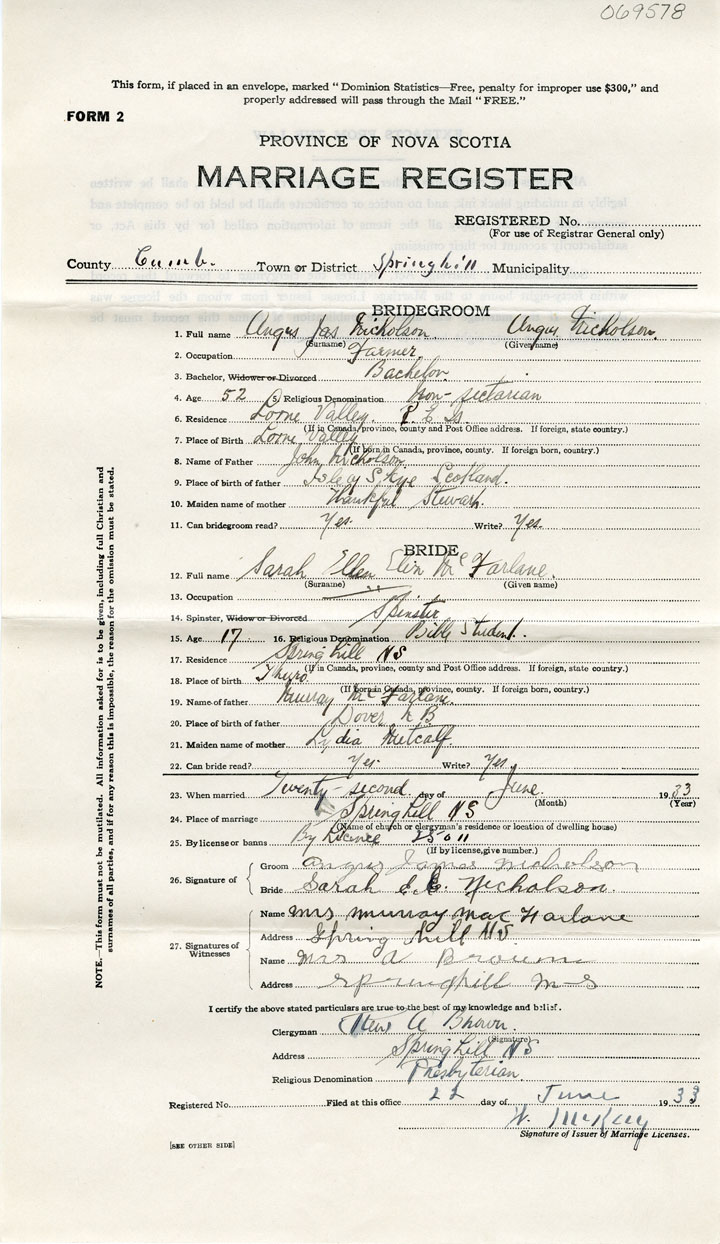 069578
This form, if placed in an envelope, marked "Dominion Statistics—Free, penalty for improper use $300," and
properly addressed will pass through the Mail "FREE."
FORM 2
PROVINCE OF NOVA SCOTIA
MARRIAGE REGISTER
REGISTERED No.
(For use of Registrar General only)
County Cumb. Town or District Springhill Municipality
BRIDEGROOM
1. Full name Angus Jas Nicholson Angus Nicholson.
(Surname) (Given name)
2. Occupation Farmer
3. Bachelor, Widower or Divorced Bachelor
4. Age 52 5. Religious Denomination Non-sictarian
6. Residence Lorne Valley. P. E. Is.
(If in Canada, province, county and Post Office address. If foreign, state country.)
7. Place of Birth Lorne Valley
(If born in Canada, province, county. If foreign born, country.)
8. Name of Father John Nicholson
9. Place of birth of father Isle of Skye Scotland.
10. Maiden name of mother Thankful Stewart.
11. Can bridegroom read? Yes. Write? Yes.
BRIDE
12. Full name Sarah Ellen Elin McFarlane.
(Surname) (Given name)
13. Occupation
14. Spinster, Widow or Divorced Spinster
15. Age 17 16. Religious Denomination Bible Student.
17. Residence Springhill NS
(If in Canada, province, county and Post Office address. If foreign, state country.)
18. Place of birth Thuro
(If born in Canada, province, county. If foreign born, country.)
19. Name of father Murray McFarlane
20. Place of birth of father Dover N B
21. Maiden name of mother Lydia Metcalf.
22. Can bride read? Yes. Write? Yes.
23. When married Twenty-second day of June. 1933
(Month) (Year)
24. Place of marriage Springhill NS
(Name of church or clergyman's residence or location of dwelling house)
25. By license or banns By Licence
(If by license, give number.)
26. Signature of Groom Angus James Nicholson
Bride Sarah E. Nicholson.
27. Signatures of Witnesses Name Mrs Murray MacFarlane
Address Spring hill NS.
Name Mrs A Brown
Address Springhill N-S
I certify the above stated particulars are true to the best of my knowledge and belief.
Clergyman A Brown.
(Signature)
Address Springhill NS
Religious Denomination Presbyterian
Registered No. Filed at this office 22 day of June 1933
W. McKay
Signature of Issuer of Marriage Licenses.
[SEE OTHER SIDE]
NOTE.—This form must not be mutilated. All information asked for is to be given, including full Christian and
surnames of all parties, and if for any reason this is impossible, the reason for the omission must be stated.